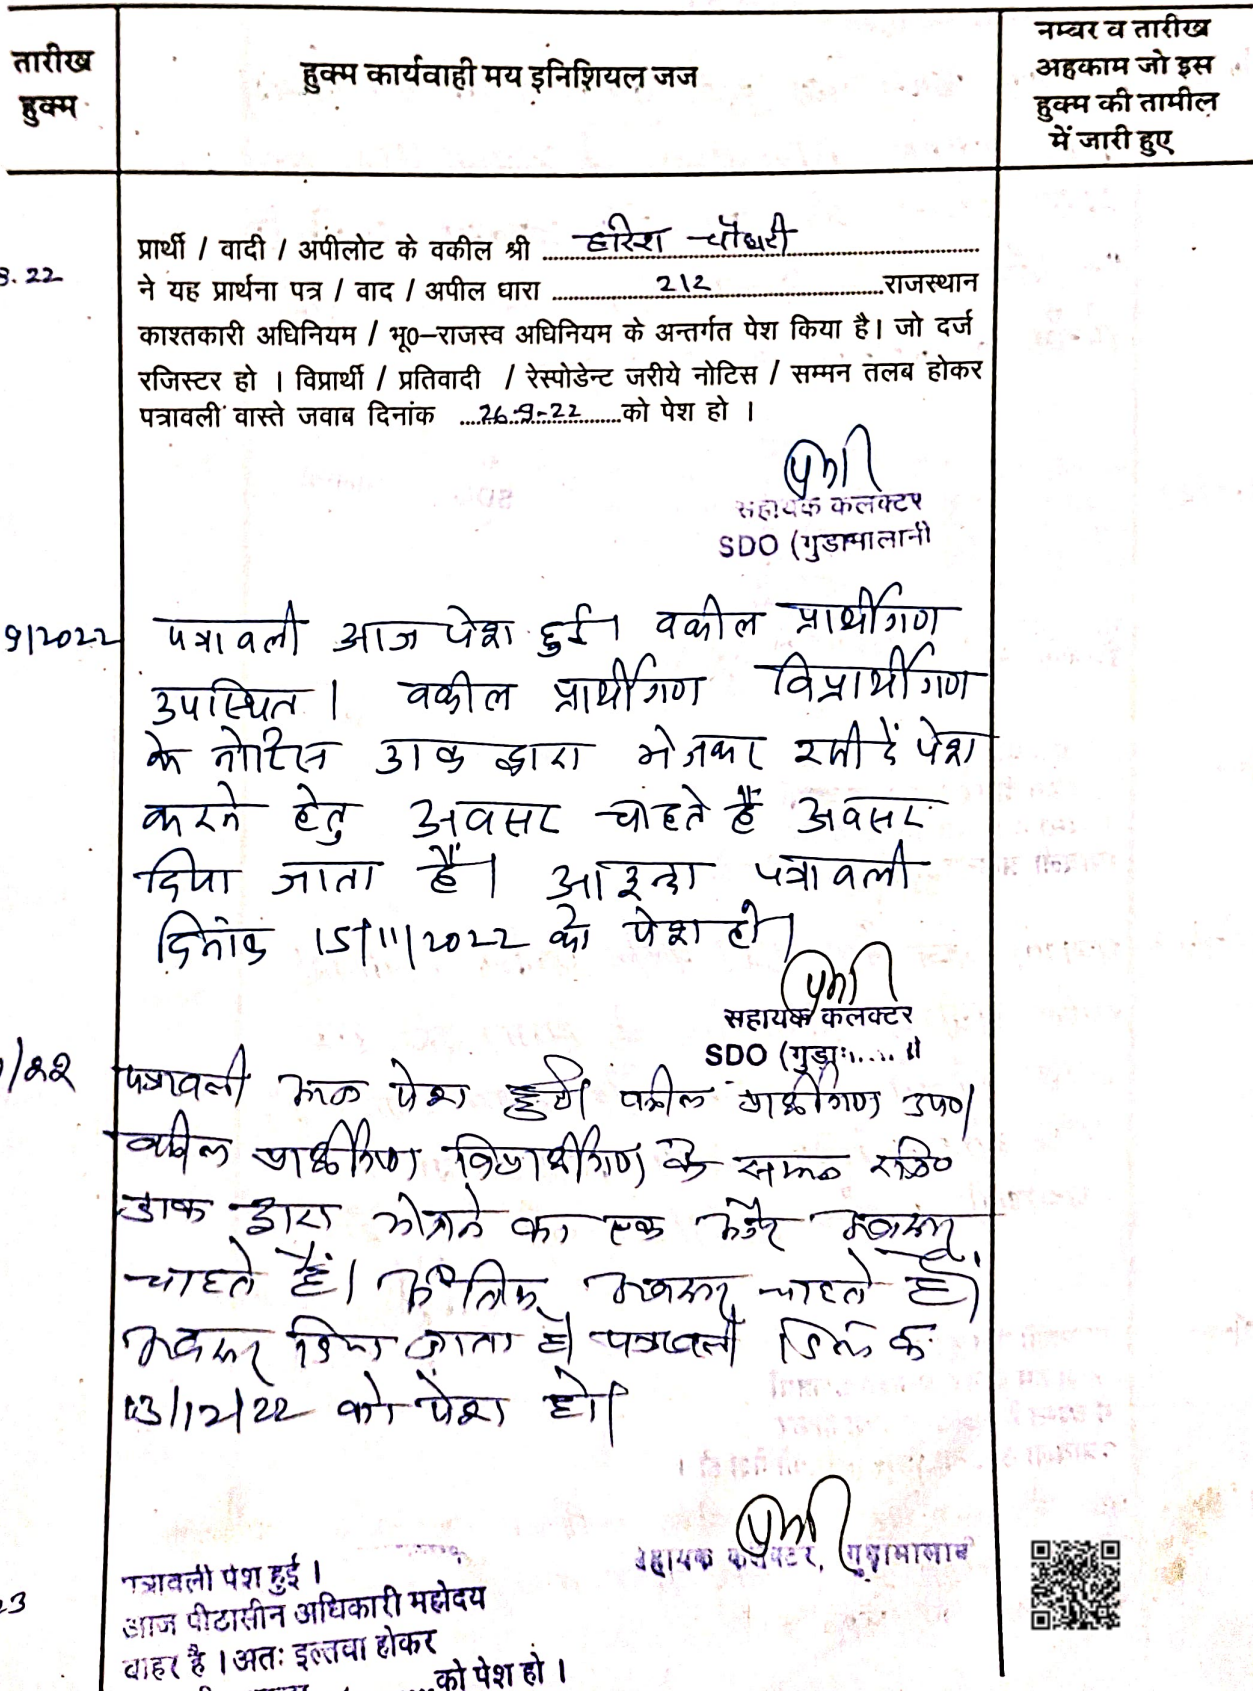 तारीख
हुक्म
हुक्म कार्यवाही मय इनिशियल जज
नम्बर व तारीख
अहकाम जो इस
हुक्म की तामील
में जारी हुए
प्रार्थी / वादी / अपीलोट के वकील श्री हरिश चौधरी
3.22
ने यह प्रार्थना पत्र / वाद / अपील धारा 212 राजस्थान
काश्तकारी अधिनियम / भू०-राजस्व अधिनियम के अन्तर्गत पेश किया है। जो दर्ज
रजिस्टर हो । विप्रार्थी / प्रतिवादी / रेस्पोडेन्ट जरीये नोटिस / सम्मन तलब होकर
पत्रावली वास्ते जवाब दिनांक 26-9-22 को पेश हो ।
सहायक कलक्टर
SDO (गुडामालानी
9/2022 पत्रावली आज पेश हुई। वकील प्रार्थीगण
उपस्थित । वकील प्रार्थीगण विप्रार्थीगण
के नोटिस डाक द्वारा भेजकर रसीदें पेश
करने हेतु अवसर चाहते हैं अवसर
दिया जाता हैं। आइन्दा पत्रावली
दिनांक 15/11/2022 को पेश हो।
सहायक कलक्टर
SDO (गुडा
/22 पत्रावली आज पेश हुई। वकील प्रार्थीगण उप०।
वकील प्रार्थीगण विप्रार्थीगण के
डाक द्वारा भेजने का एक और अवसर
चाहते हैं। अवसर चाहते है।
अवसर दिया जाता है। पत्रावली दिनांक
13/12/22 को पेश हो।
सहायक कलक्टर, गुडामालानी
पत्रावली पेश हुई ।
आज पीटासीन अधिकारी महोदय
23
बाहर है । अतः इल्तवा होकर
को पेश हो ।